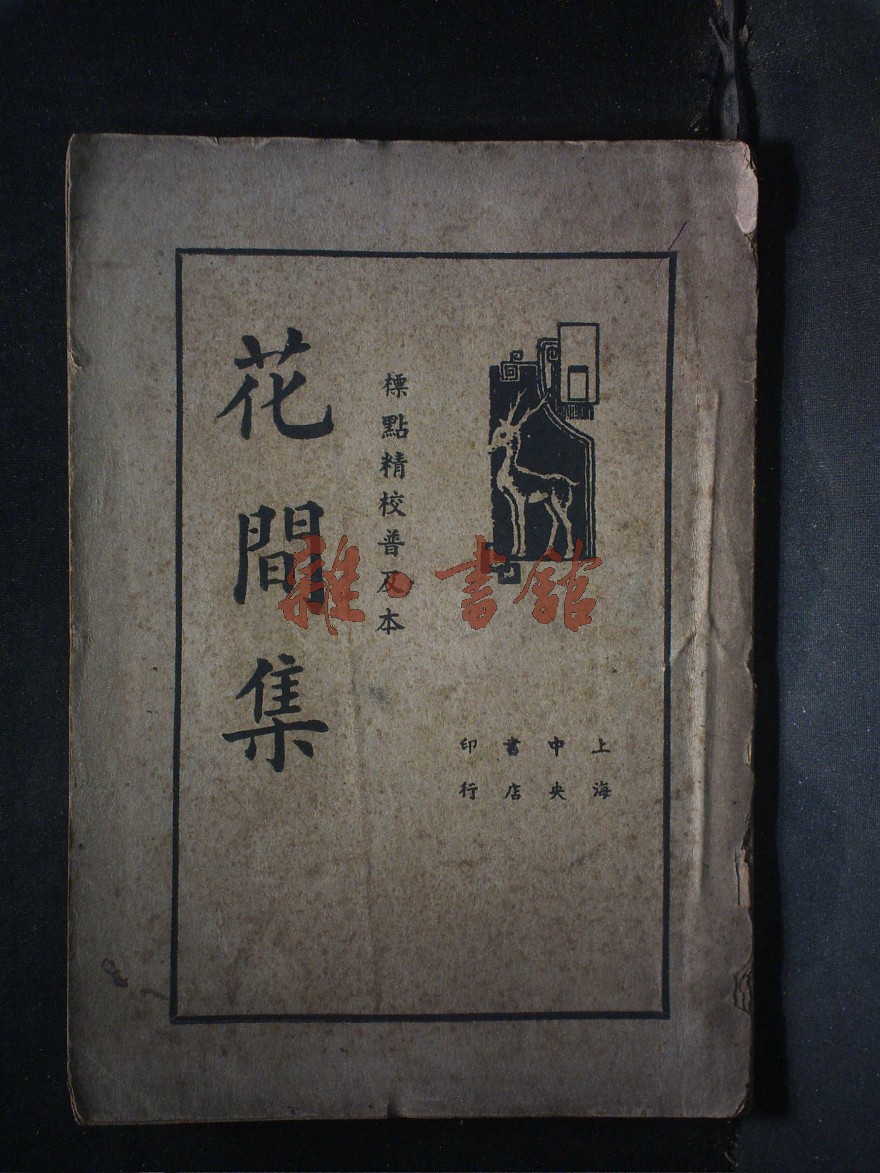 花間集
標點精校普及本
上海
中央
書店
印行
雜·書館